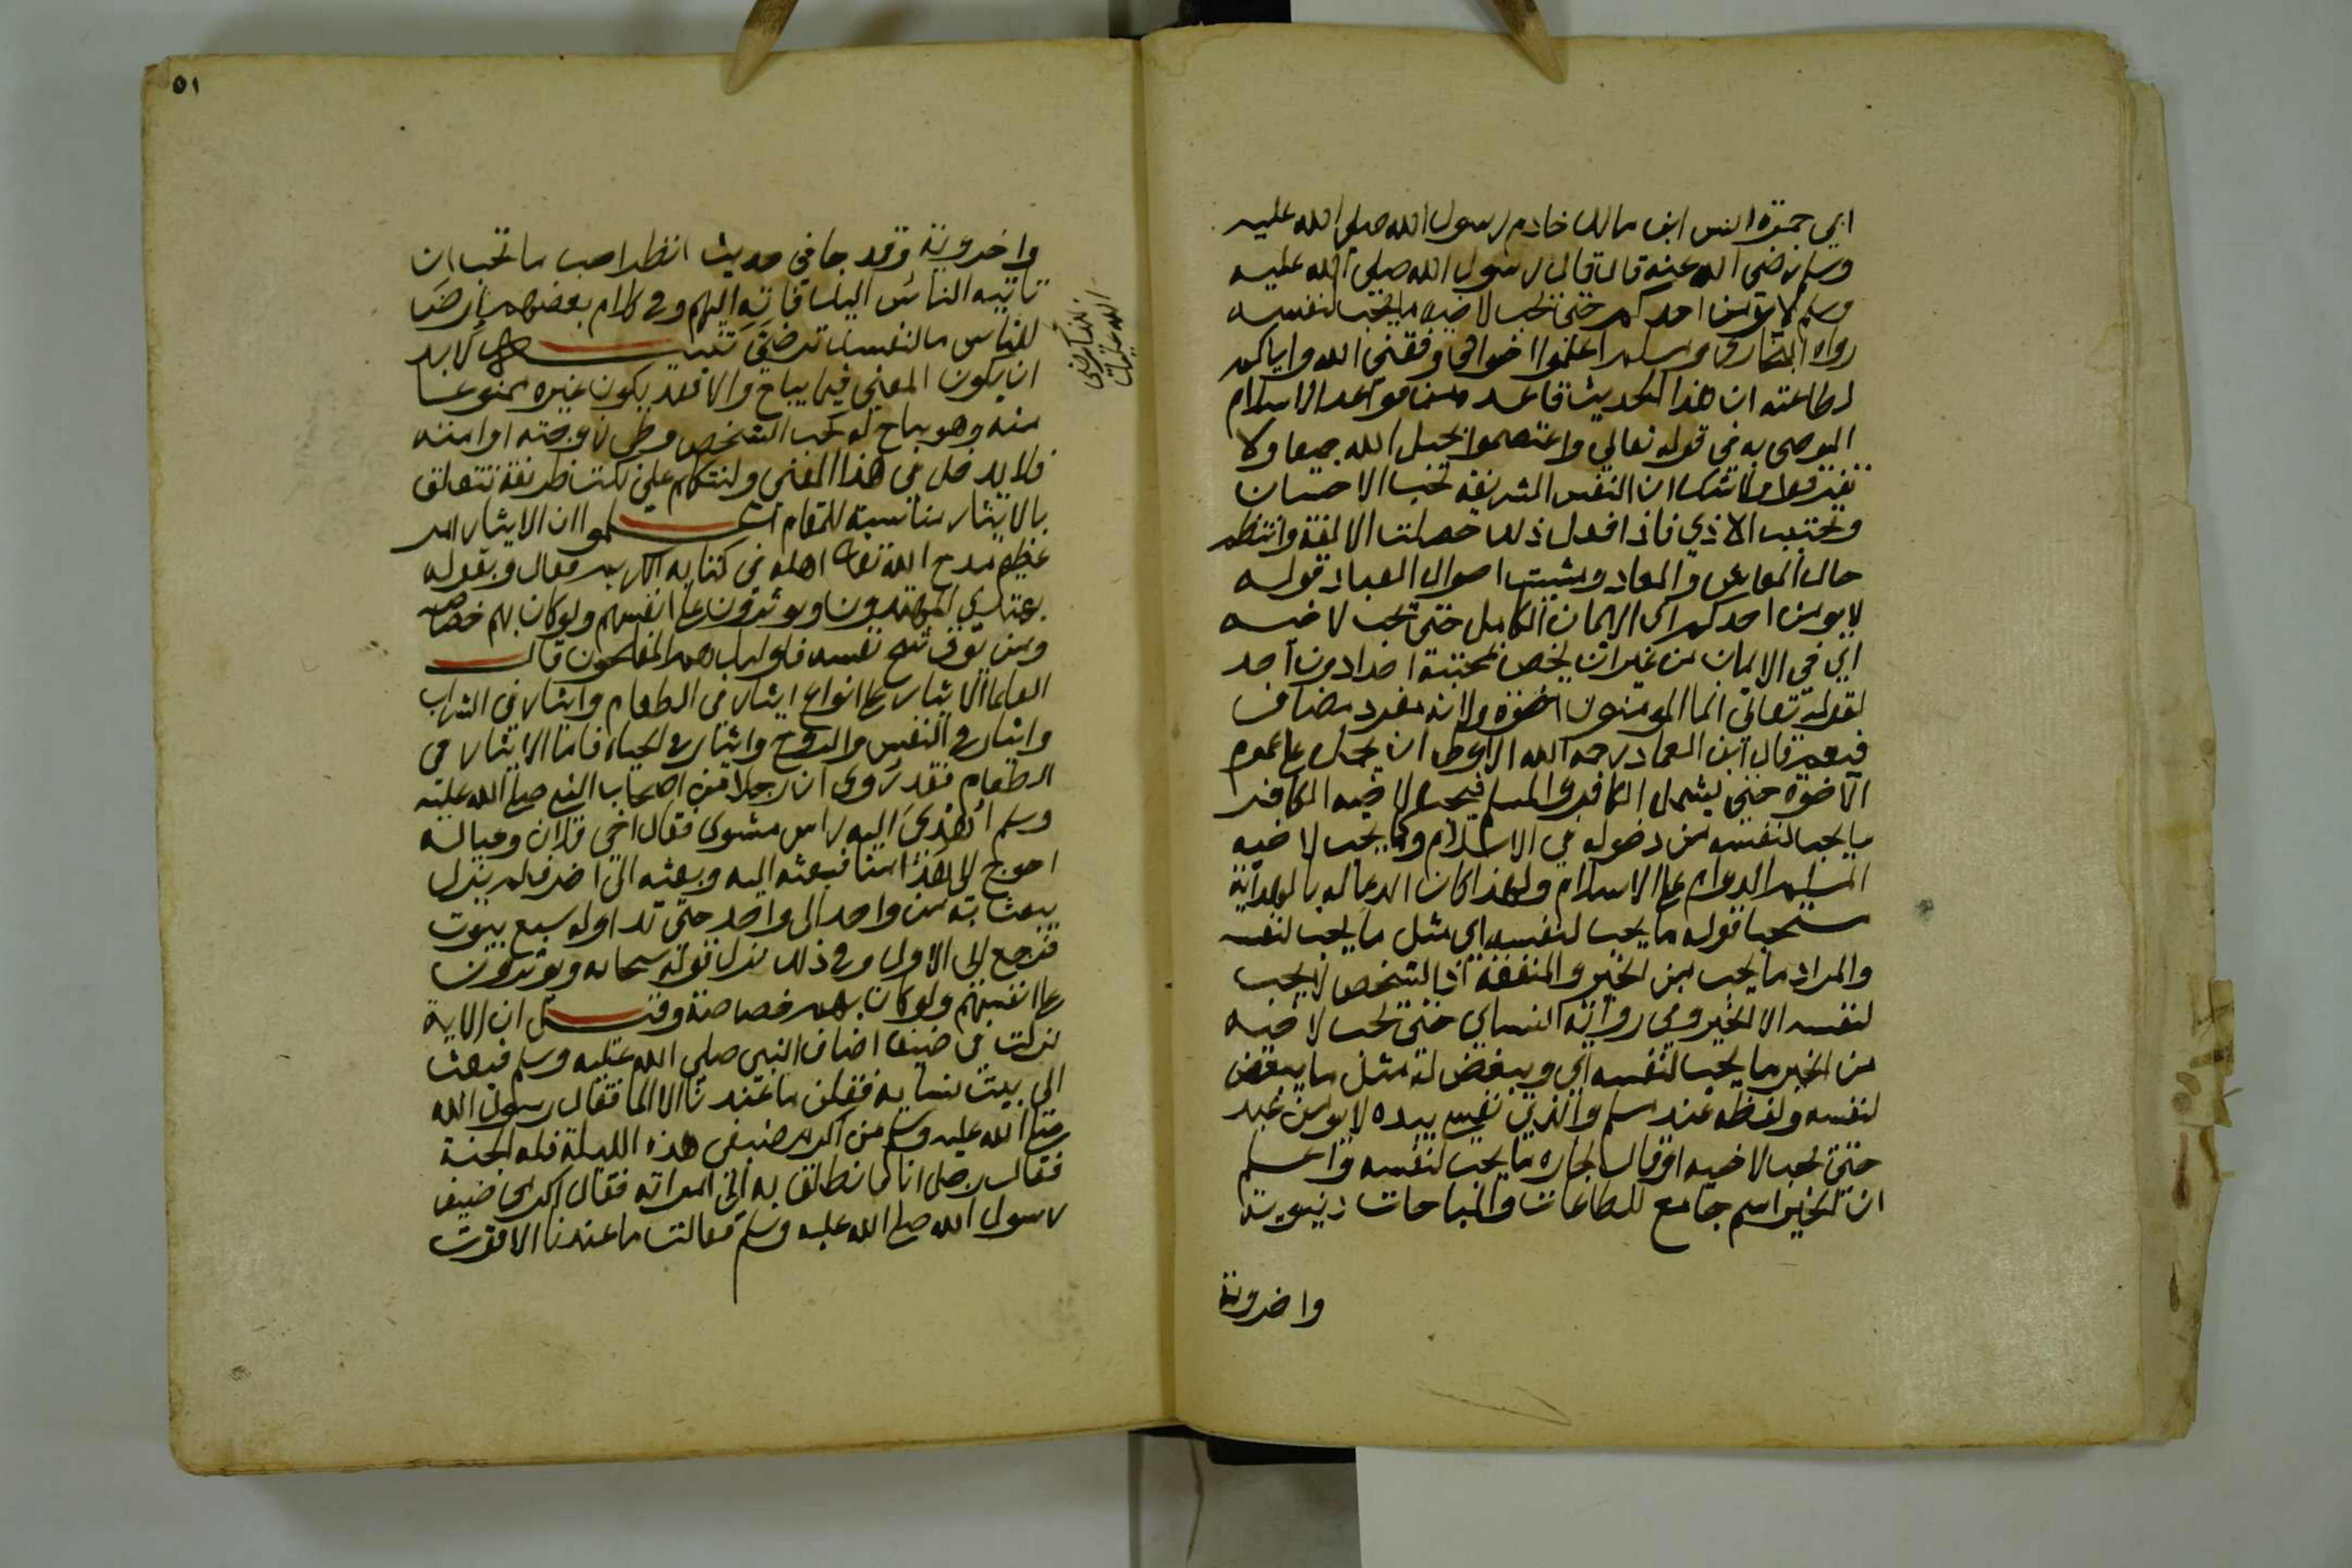 ابي حمزة انس ابن مالك خادم رسول الله صلى الله عليه
وسلم رضى الله عنه قال قال رسول الله صلى الله عليه
وسلم لا يؤمن احدكم حتى يحب لاخيه ما يحب لنفسه
رواه البخارى ومسلم اعلموا اخوانى وفقنى الله واياكم
لطاعته ان هذا الحديث قاعدة من قواعد الاسلام
الموصى به في قوله تعالى واعتصموا بحبل الله جميعا ولا
تفرقوا ولا شك ان النفس الشريفة تحب الاحسان
وتجتنب الاذي فاذا فعل ذلك حصلت الالفة وانتظم
حال المعاش والمعاد ومشت احوال العباد قوله
لا يومن احدكم اى الايمان الكامل حتى يحب لاخيه
اي في الايمان من غير ان يخص بمحبته احدا دون احد
لقوله تعالى انما المومنون اخوة ولانه مفرد مضاف
فيعم قال ابن العماد رحمه الله الاولى ان يحمل على عموم
الاخوة حتى يشمل الكافر والمسلم فيحب لاخيه الكافر
ما يحب لنفسه من دخوله في الاسلام وكما يحب لاخيه
المسلم الدوام على الاسلام ولهذا كان الدعا له بالهداية
مستحبا قوله ما يحب لنفسه اي مثل ما يحب لنفسه
والمراد ما يحب من الخير والمنفعة اذ الشخص لا يحب
لنفسه الا الخير وفي رواية النساي حتى يحب لاخيه
من الخير ما يحب لنفسه اي ويبغض له مثل ما يبغض
لنفسه ولفظه عند مسلم والذي نفسي بيده لا يومن عبد
حتى يحب لاخيه او قال لجاره ما يحب لنفسه واعلم
ان الخير اسم جامع للطاعات والمباحات دنيوية
واخروية
٥١
واخروية وقد جا في حديث انظر احب ما تحب ان
تاتيه الناس اليك فاته اليهم وفي كلام بعضهم ارض
للناس ما لنفسك ترضى تنبيه لا بد
ان يكون المعنى فيما يباح والا فقد يكون غيره ممنوعا
منه وهو مباح له كحب الشخص وطى زوجته او امته
فلا يدخل في هذا المعنى ولنتكلم على نكت ظريفة تتعلق
بالايثار مناسبة للمقام اعلموا ان الايثار امر
عظيم مدح الله تعالى اهله في كتابه الكريم فقال وبقوله
يهتدي المهتدون ويوثرون على انفسهم ولو كان بهم خصاصة
ومن يوق شح نفسه فاوليك هم المفلحون قال
العلما الايثار على انواع ايثار في الطعام وايثار في الشراب
وايثار في النفس والروح وايثار في الحياة فاما الايثار في
الطعام فقد روى ان رجلا من اصحاب النبي صلى الله عليه
وسلم اهدى اليه راس مشوى فقال اخى فلان وعياله
احوج الى هذا منا فبعثه اليه وبعثه الى اخر فلم يزل
يبعث به من واحد الى واحد حتى تداوله سبع بيوت
فرجع الى الاول وفي ذلك نزل قوله سبحانه ويوثرون
على انفسهم ولو كان بهم خصاصة وقيل ان الاية
نزلت في ضيف اضاف النبي صلى الله عليه وسلم فبعث
الى بيت نسايه فقلن ما عندنا الا الما فقال رسول الله
صلى الله عليه وسلم من اكرم ضيفى هذه الليلة فله الجنة
فقال رجل انا فانطلق به الى امراته فقال اكرمى ضيف
رسول الله صلى الله عليه وسلم فقالت ما عندنا الا قوت